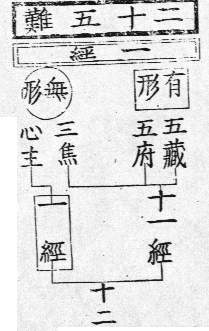 二十五難
一經
有形
無形
五藏
五府
三焦
心主
十一經
一經
十二